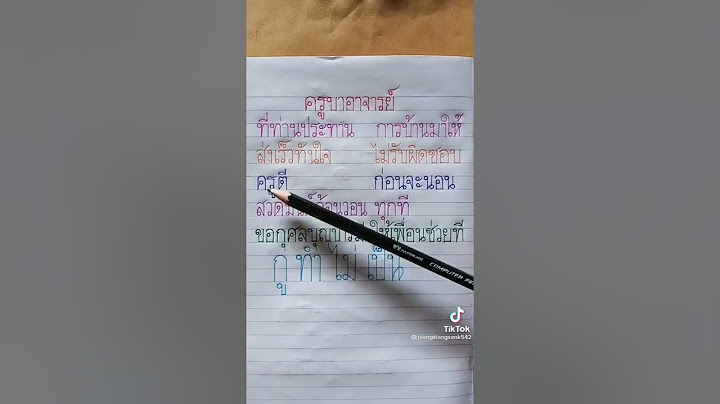 ครูบาอาจารย์
ที่ท่านประทาน การบ้านมาให้
ส่งเร็วทันใจ ไม่รับผิดชอบ
ครูตี ก่อนจะนอน
ทุกที
ขอกุศลบุญ ให้เพื่อนช่วยที
กู ทำ ไม่ เป็น
COMPUTER
TikTok